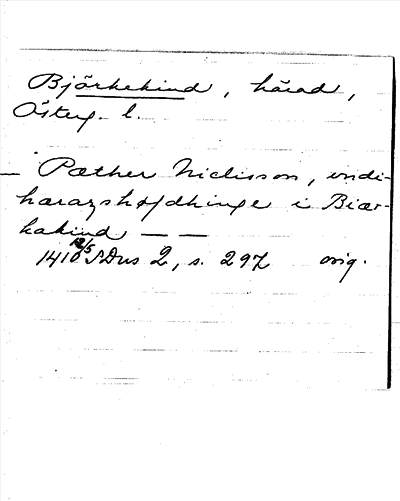 Björkekind, härad,
Österg. l.
Pæther Niclisson, vndi-
haræzshøfdhinge i Biær-
kakind — —
1410 12/5 SDns 2, s. 297 orig.